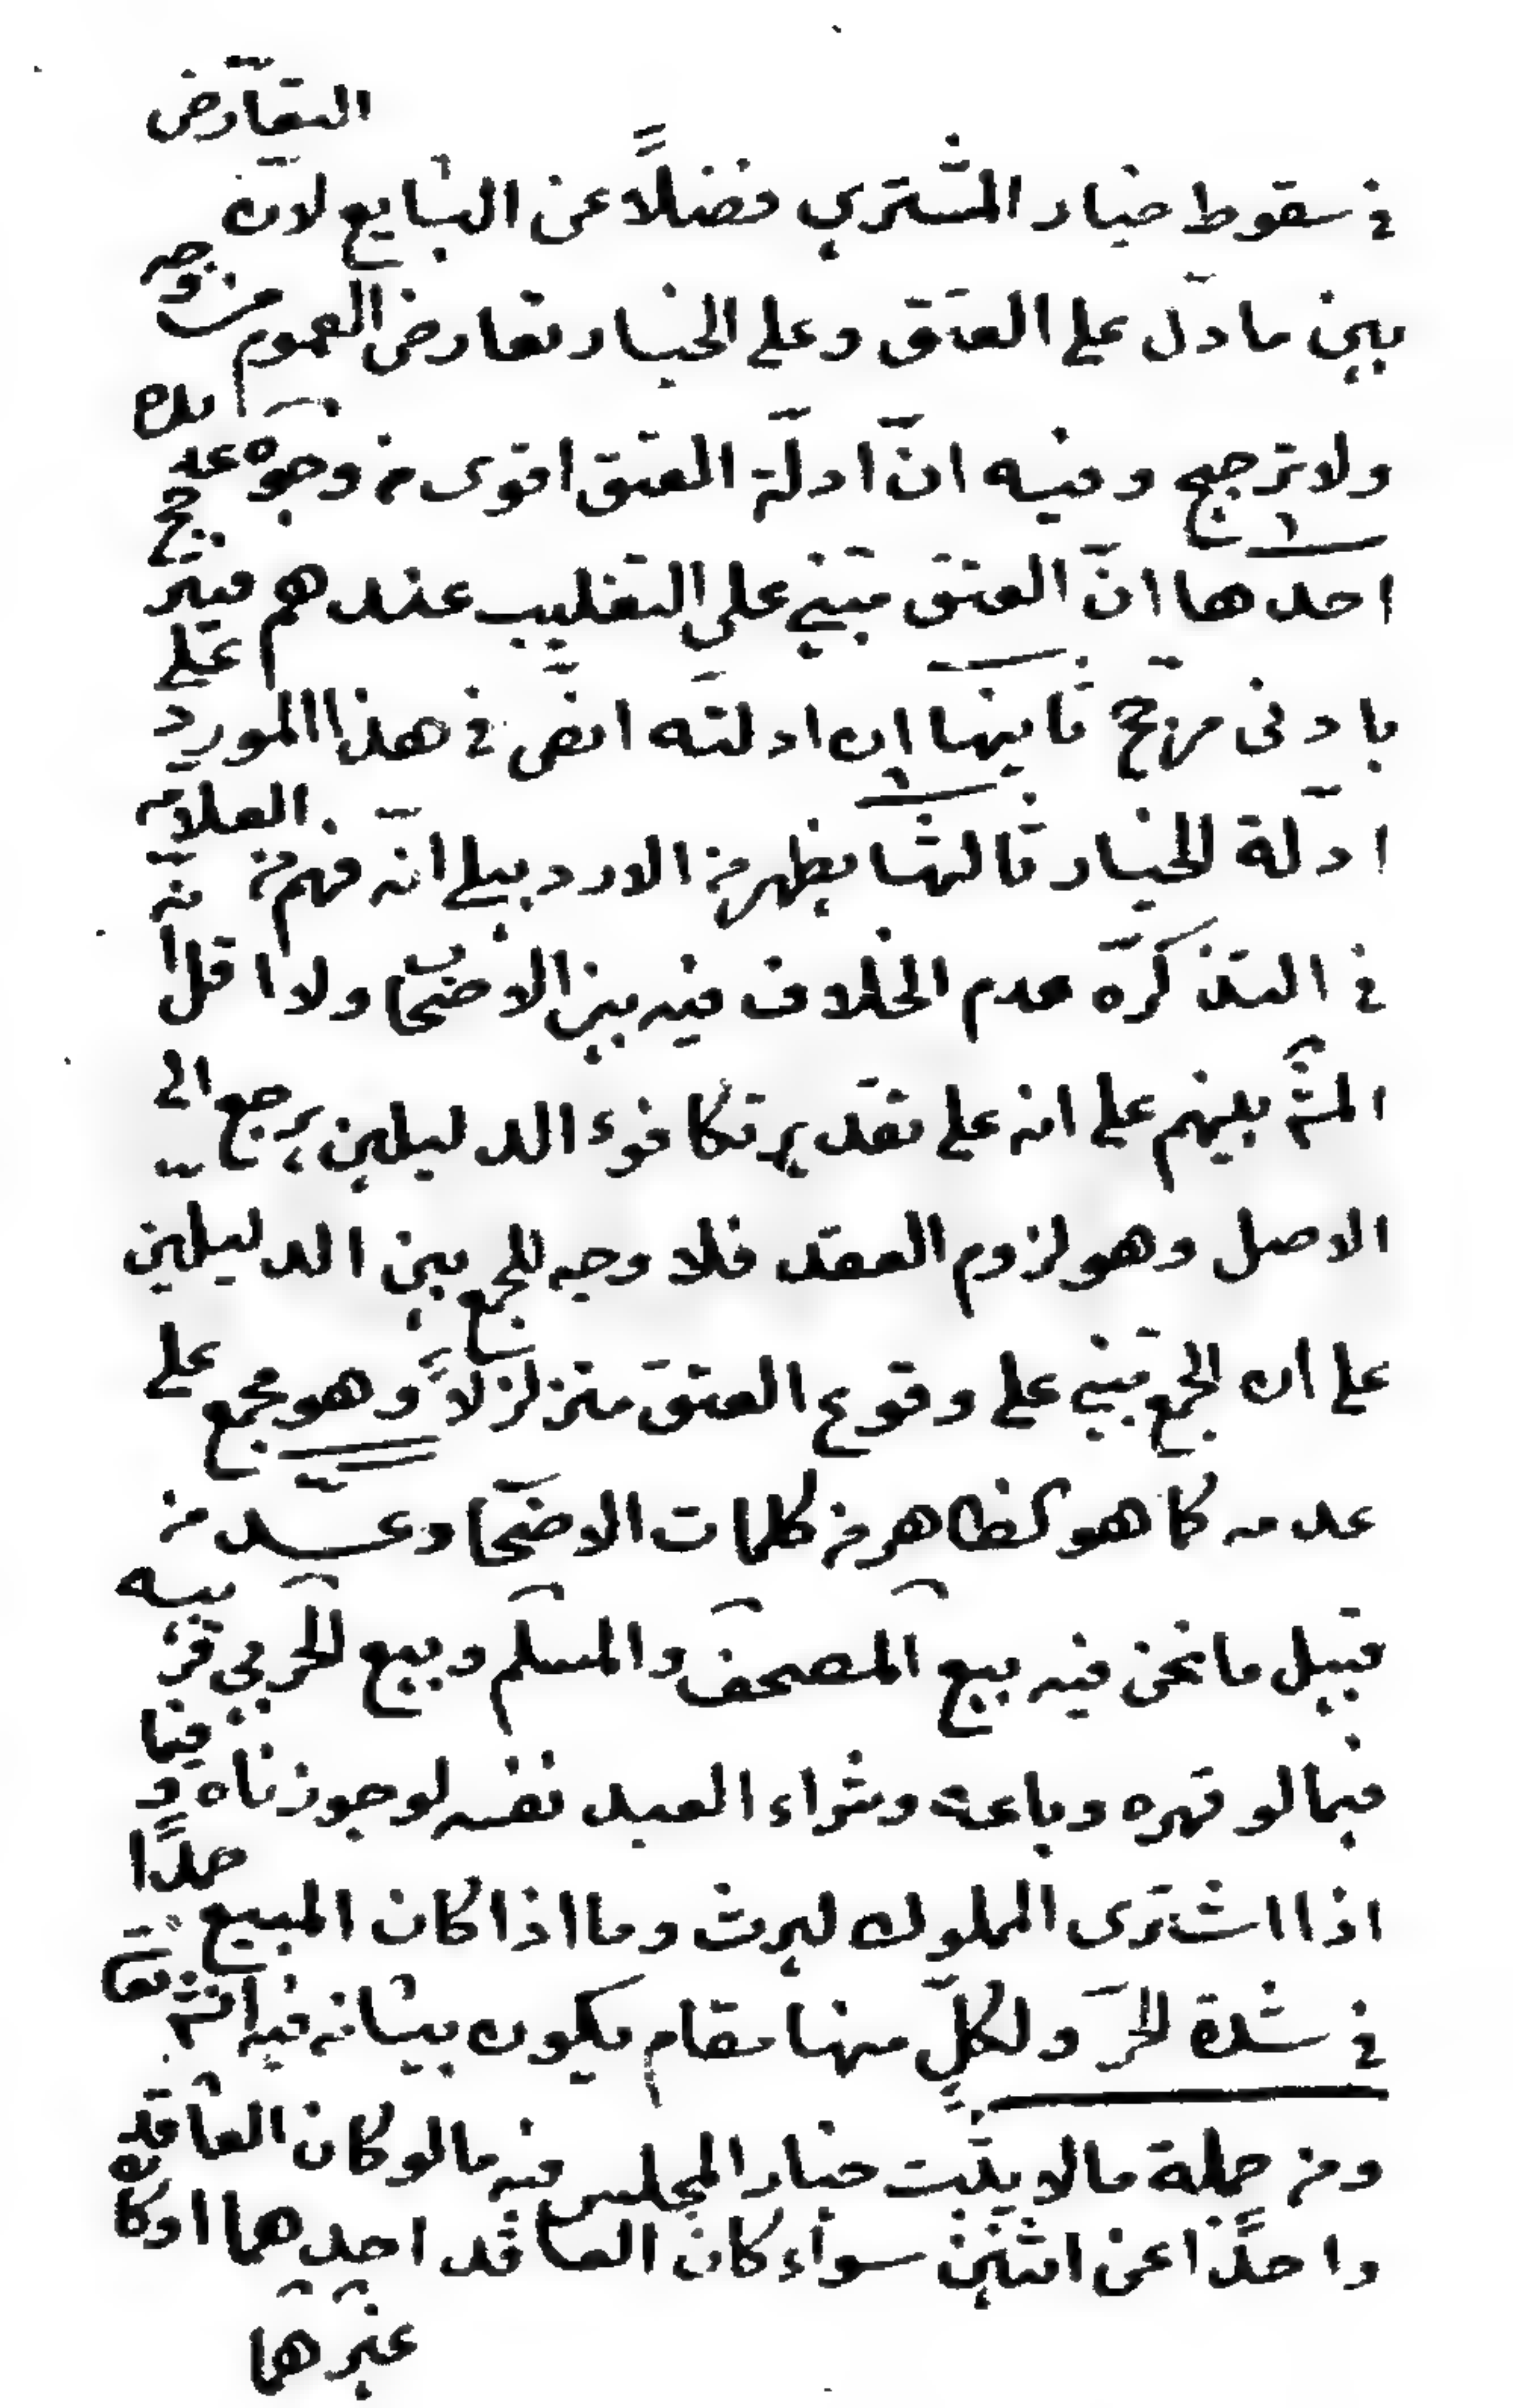 في سقوط خيار المشتري فضلاً عن البايع لان التعارض
بين ما دل على العتق وعلى الخيار تعارض العموم من وجه
ولا ترجيح وفيه انّ ادلّة العتق اقوى من وجوه عديدة
احدها انّ العتق مبني على التغليب عندهم فيترجح
بادنى مرجح ثانيها ان ادلته انص في هذا المورد على
ادلة الخيار ثالثها يظهر من الاردبيلي انّه فهم من العلامة
في التذكرة عدم الخلاف فيه بين الاصحاب ولا اقل انه
المش بينهم على انه على تقدير تكافوء الدليلين يرجع الى
الاصل وهو لزوم العقد فلا وجه للجمع بين الدليلين
على ان الجمع مبني على وقوع العتق متزلزلاً وهو مجمع على
عدمه كما هو الظاهر من كلمات الاصحاب وعدّ من
قبيل ما نحن فيه بيع المصحف والمسلم وبيع الحربي قريبه
فيما لو قهره وباعه وشراء العبد نفسه لو جوزناه وفيما
اذا اشترى المملوك ليرث وما اذا كان المبيع جمدًا
في شدة الحرّ ولكلّ منها مقام يكون بيانه فيه انش تعا
ومن جملة ما لا يثبت خيار المجلس فيه ما لو كان العاقد
واحدًا عن اثنين سواء كان العاقد احدهما او كان
غيرها